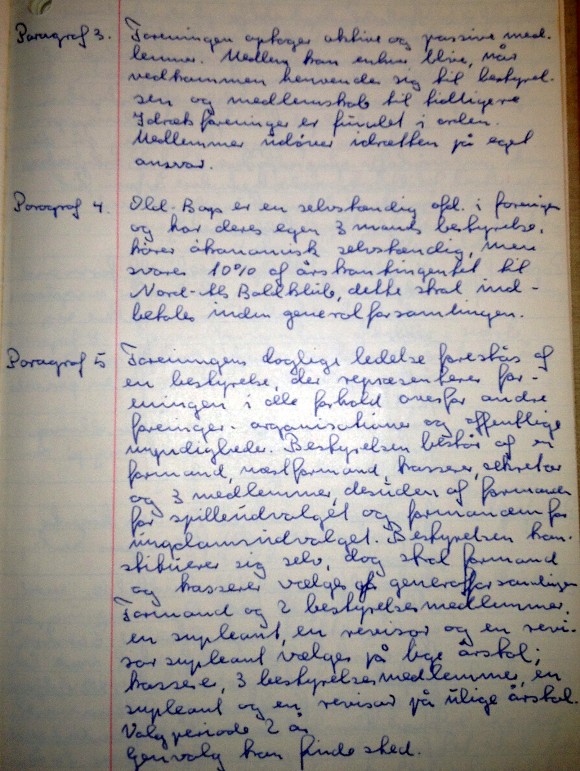 Paragraf 3. Foreningen optager aktive og passive med-
lemmer. Medlem kan enhver blive, når
vedkommen henvender sig til bestyrel-
sen og medlemskab til tidligere
Idrætsforeninger er fundet i orden.
Medlemmer udøver idrætten på eget
ansvar.
Paragraf 4. Old. Boys er en selvstændig afd. i foreningen
og har deres egen 3 mands bestyrelse,
kører økonomisk selvstændig, men
svarer 10% af årskontingentet til
Nord-Als Boldklub, dette skal ind-
betales inden generalforsamlingen.
Paragraf 5 Foreningens daglige ledelse forestås af
en bestyrelse, der repræsenterer for-
eningen i alle forhold overfor andre
foreninger- organisationer og offentlige
myndigheder. Bestyrelsen består af en
formand, næstformand, kasserer, sekretær
og 3 medlemmer, desuden af formanden
for spilleudvalget og formanden for
ungdomsudvalget. Bestyrelsen kon-
stituerer sig selv, dog skal formand
og kasserer vælges generalforsamlingen
Formand og 2 bestyrelsesmedlemmer,
en supleant, en revisor og en revi-
sor supleant vælges på lige årstal;
kasserer, 3 bestyrelsesmedlemmer, en
supleant og en revisor på ulige årstal.
Valgperiode 2 år
Genvalg kan finde sted.